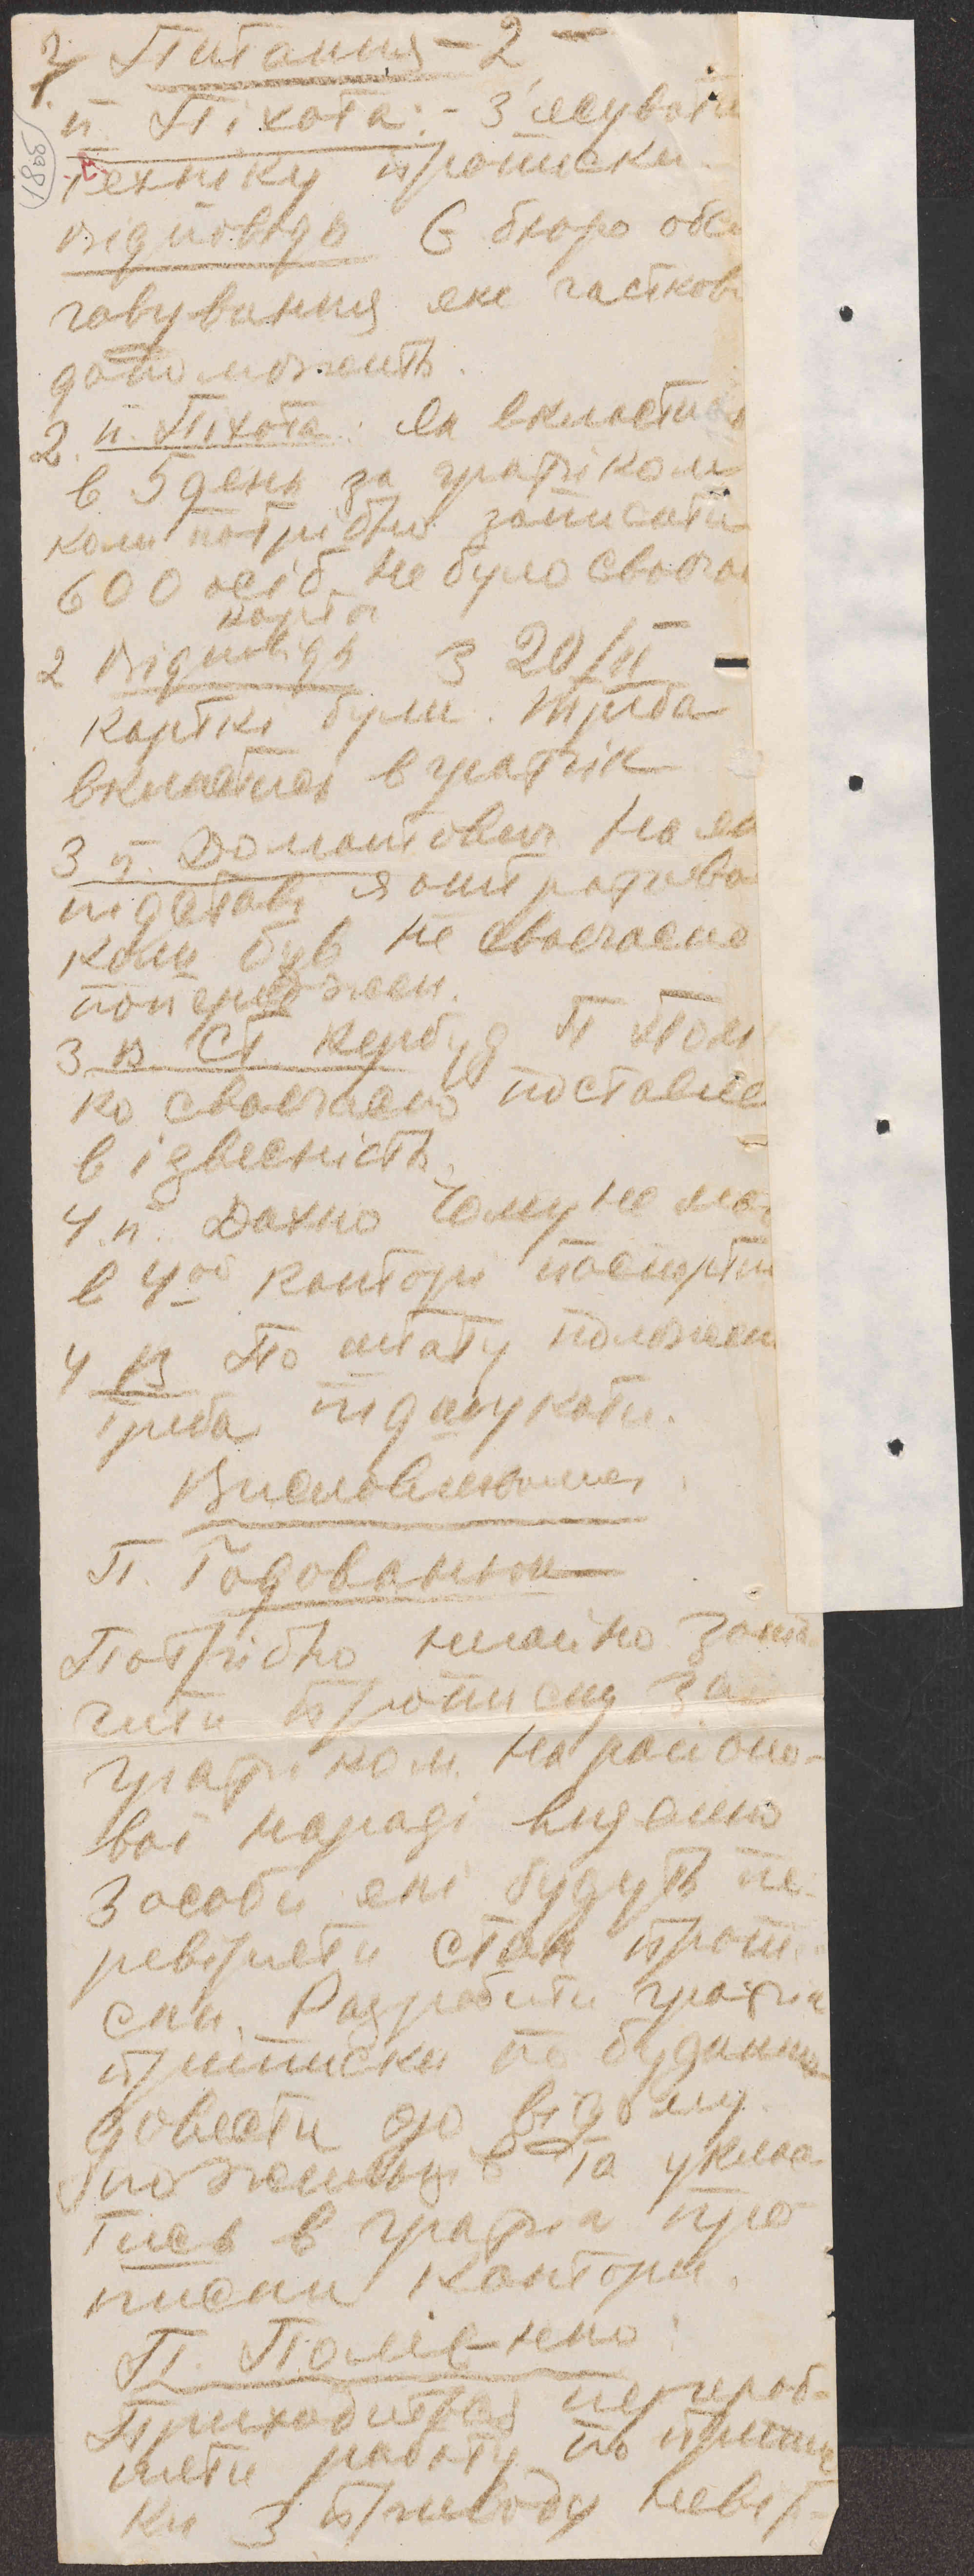 Питання - 2 -
п. Піхота: - З'ясувати
техніку прописки.
Відповідь Є бюро обслу
говування яке частков
допоможить.
2. п. Піхота: Як вкластися
в 5 день за графіком
коли потрібно записати
600 осіб не було своєча
карток
2 Відповідь З 20/II
картки були. Треба
вкластися в графік
3 п. Домонтович На як
підставі я оштрафова
коли був не своєчасно
попережен.
3 В. Ст. Кербуд П. Пол
ко своєчасно поставле
в ізвесність.
4. п. Дахно Чому не ма
в 4ой конторі паспортис
4 В По штату положен
треба підшукати.
Висловлювались
П. Годованюк
Потрібно негайно закін
чити прописку за
графіком. На районо-
вої нараді виділено
3 особи які будуть пе-
ревіряти стан пропи
ски. Розробити графік
прописки по будинкам
довести до відому
та укласти
тись в графік про
писки контори.
П. Полієнко:
Приходиться перероб-
ляти работу по пропис
ки з приводу невір-